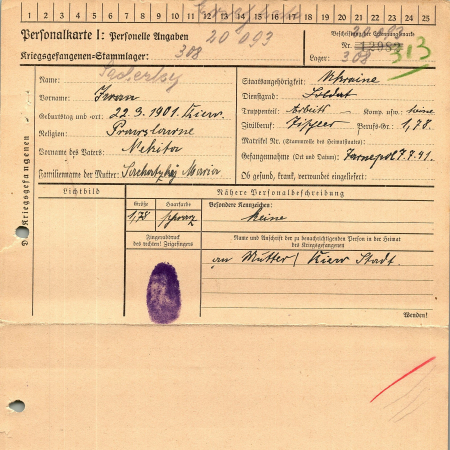 1 2 3 4 5 6 7 8 9 10 11 12 13 14 15 16 17 18 19 20 21 22 23 24 25
Personalkarte I: Personelle Angaben
Kriegsgefangenen-Stammlager: 308
20093
Beschriftung der Erkennungsmarke
Nr. 12982
313
Lager: 308
Name:
Vorname: Iwan
Geburtstag und -ort: 22.9.1901. Kiew
Religion: Prawslawne
Vorname des Vaters: Nekita
Familienname der Mutter: Maria
Staatsangehörigkeit: Ukraine
Dienstgrad: Soldat
Truppenteil: Arbeits Komp. usw. keine
Zivilberuf: Berufs-Gr.: 1,78.
Matrikel Nr. (Stammrolle des Heimatstaates):
Gefangennahme (Ort und Datum): Tarnepol 7.7.41.
Ob gesund, krank, verwundet eingeliefert:
Lichtbild
Nähere Personalbeschreibung
Größe
Haarfarbe
Besondere Kennzeichen:
1,78 schwarz
Keine
Fingerabdruck
des rechten! Zeigefingers
Name und Anschrift der zu benachrichtigenden Person in der Heimat
des Kriegsgefangenen
an Mutter / Kiew Stadt.
Wenden!
Kriegsgefangenen